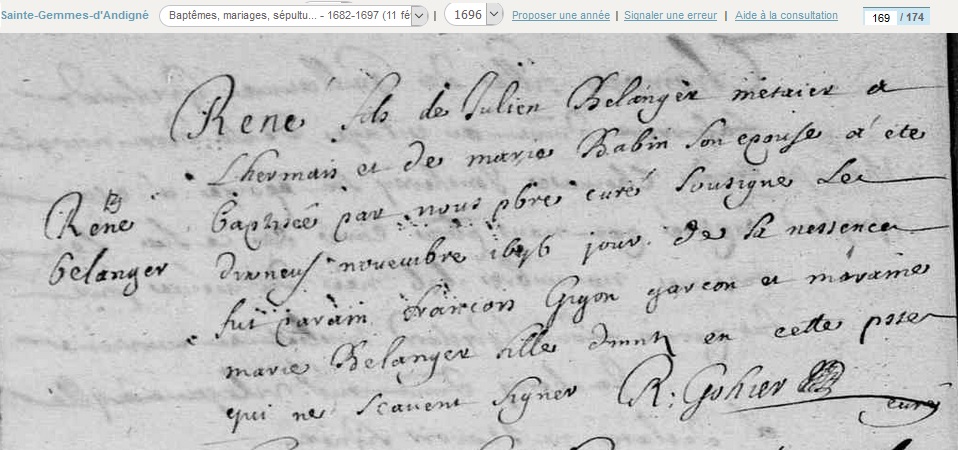 Sainte-Gemmes-d'Andigné
Baptêmes, mariages, sépultu... - 1682-1697 (11 fé
|
1696
Proposer une année | Signaler une erreur | Aide à la consultation
169 / 174
René fils de Julien Belanger métaier a
Lhermais et de marie Babin son epouse a été
baptisée par nous pbre curé sousigne Le
dixneuf novembre 1696 jour de sa nessence
fut parain francois Gigon garcon et maraine
marie Belanger fille dmnt en cette psse
qui ne scavent signer R: Gohier
curé
B
René
belanger